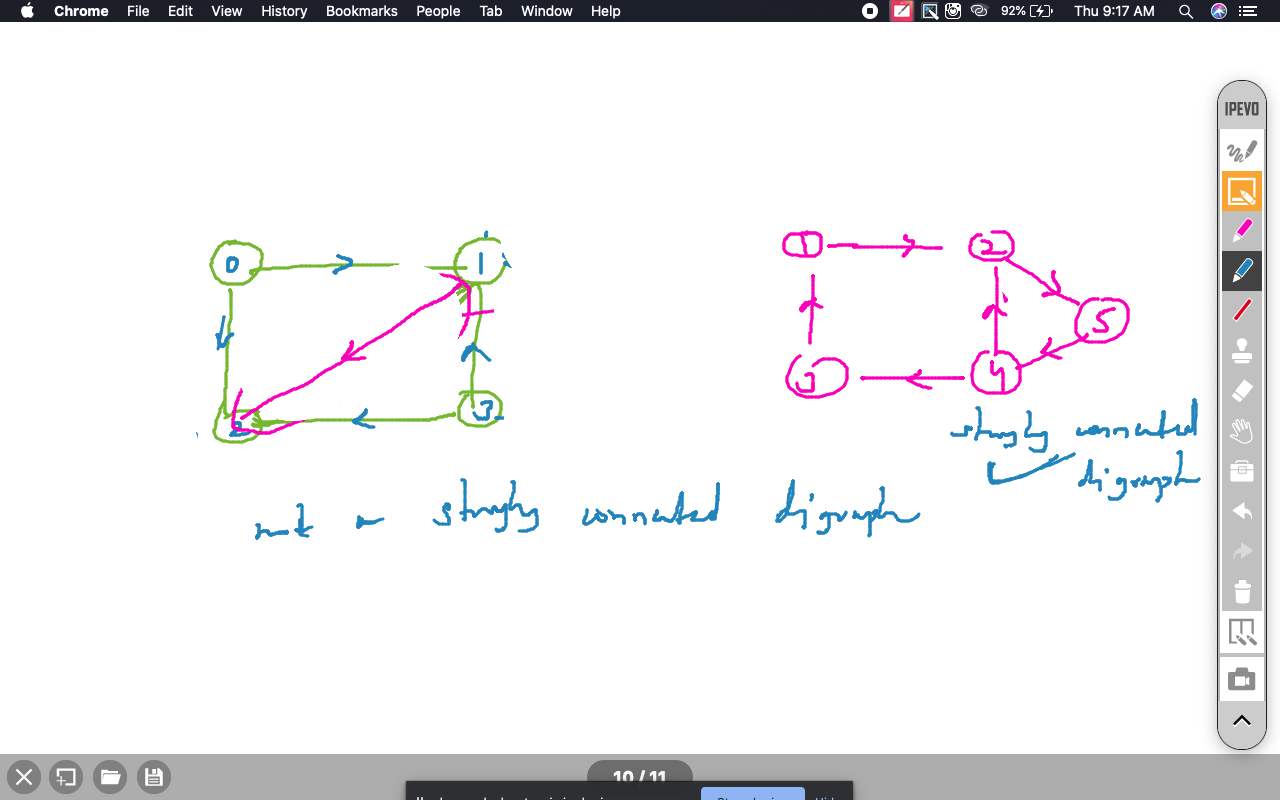 Chrome File Edit View History Bookmarks People Tab Window Help 92% Thu 9:17 AM
IPEVO
0 1
2 3
1 2
5
3 4
strongly connected
digraph
not a strongly connected digraph
10 / 11